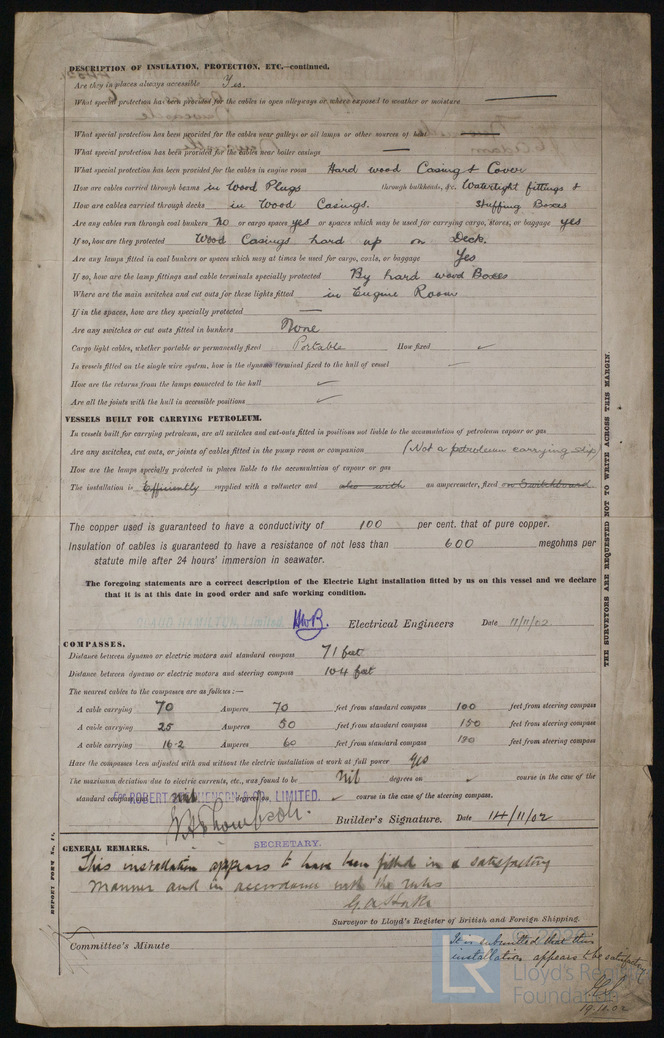 DESCRIPTION OF INSULATION, PROTECTION, ETC.—continued.
Are they in places always accessible Yes.
What special protection has been provided for the cables in open alleyways or where exposed to weather or moisture
What special protection has been provided for the cables near galleys or oil lamps or other sources of heat
What special protection has been provided for the cables near boiler casings
What special protection has been provided for the cables in engine room Hard wood Casing & Cover
How are cables carried through beams in Wood Plugs through bulkheads, &c. Watertight fittings &
How are cables carried through decks in Wood Casings. Stuffing Boxes
Are any cables run through coal bunkers No or cargo spaces yes or spaces which may be used for carrying cargo, stores, or baggage yes
If so, how are they protected Wood Casings hard up on Deck.
Are any lamps fitted in coal bunkers or spaces which may at times be used for cargo, coals, or baggage Yes
If so, how are the lamp fittings and cable terminals specially protected By hard wood Boxes
Where are the main switches and cut outs for these lights fitted in Engine Room
If in the spaces, how are they specially protected
Are any switches or cut outs fitted in bunkers None
Cargo light cables, whether portable or permanently fixed Portable How fixed
In vessels fitted on the single wire system, how is the dynamo terminal fixed to the hull of vessel
How are the returns from the lamps connected to the hull
Are all the joints with the hull in accessible positions
VESSELS BUILT FOR CARRYING PETROLEUM.
In vessels built for carrying petroleum, are all switches and cut-outs fitted in positions not liable to the accumulation of petroleum vapour or gas
Are any switches, cut outs, or joints of cables fitted in the pump room or companion (Not a petroleum carrying ship)
How are the lamps specially protected in places liable to the accumulation of vapour or gas
The installation is Efficiently supplied with a voltmeter and also with an amperemeter, fixed on Switchboard
The copper used is guaranteed to have a conductivity of 100 per cent. that of pure copper.
Insulation of cables is guaranteed to have a resistance of not less than 600 megohms per
statute mile after 24 hours' immersion in seawater.
The foregoing statements are a correct description of the Electric Light installation fitted by us on this vessel and we declare
that it is at this date in good order and safe working condition.
HAMILTON, Limited. Electrical Engineers Date 11/11/02
COMPASSES.
Distance between dynamo or electric motors and standard compass 71 feet
Distance between dynamo or electric motors and steering compass 104 feet
The nearest cables to the compasses are as follows:—
A cable carrying 70 Amperes 70 feet from standard compass 100 feet from steering compass
A cable carrying 25 Amperes 50 feet from standard compass 150 feet from steering compass
A cable carrying 16.2 Amperes 60 feet from standard compass feet from steering compass
Have the compasses been adjusted with and without the electric installation at work at full power Yes
The maximum deviation due to electric currents, etc., was found to be Nil degrees on course in the case of the
standard compass and Nil degrees on course in the case of the steering compass.
For ROBERT STEPHENSON & CO. LIMITED.
Thompson. Builder's Signature. Date 14/11/02
SECRETARY.
GENERAL REMARKS.
This installation appears to have been fitted in a satisfactory
manner and in accordance with the rules
Surveyor to Lloyd's Register of British and Foreign Shipping.
Committee's Minute
It is submitted that this
installation appears to be satisfactory
19.11.02
THE SURVEYORS ARE REQUESTED NOT TO WRITE ACROSS THIS MARGIN.
LR
Lloyd's Register
Foundation